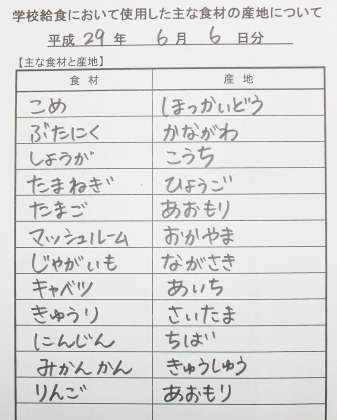 学校給食において使用した主な食材の産地について
平成 29 年 6 月 6 日分
【主な食材と産地】
食材 産地
こめ ほっかいどう
ぶたにく かながわ
しょうが こうち
たまねぎ ひょうご
たまご あおもり
マッシュルーム おかやま
じゃがいも ながさき
キャベツ あいち
きゅうり さいたま
にんじん ちば
みかんかん きゅうしゅう
りんご あおもり